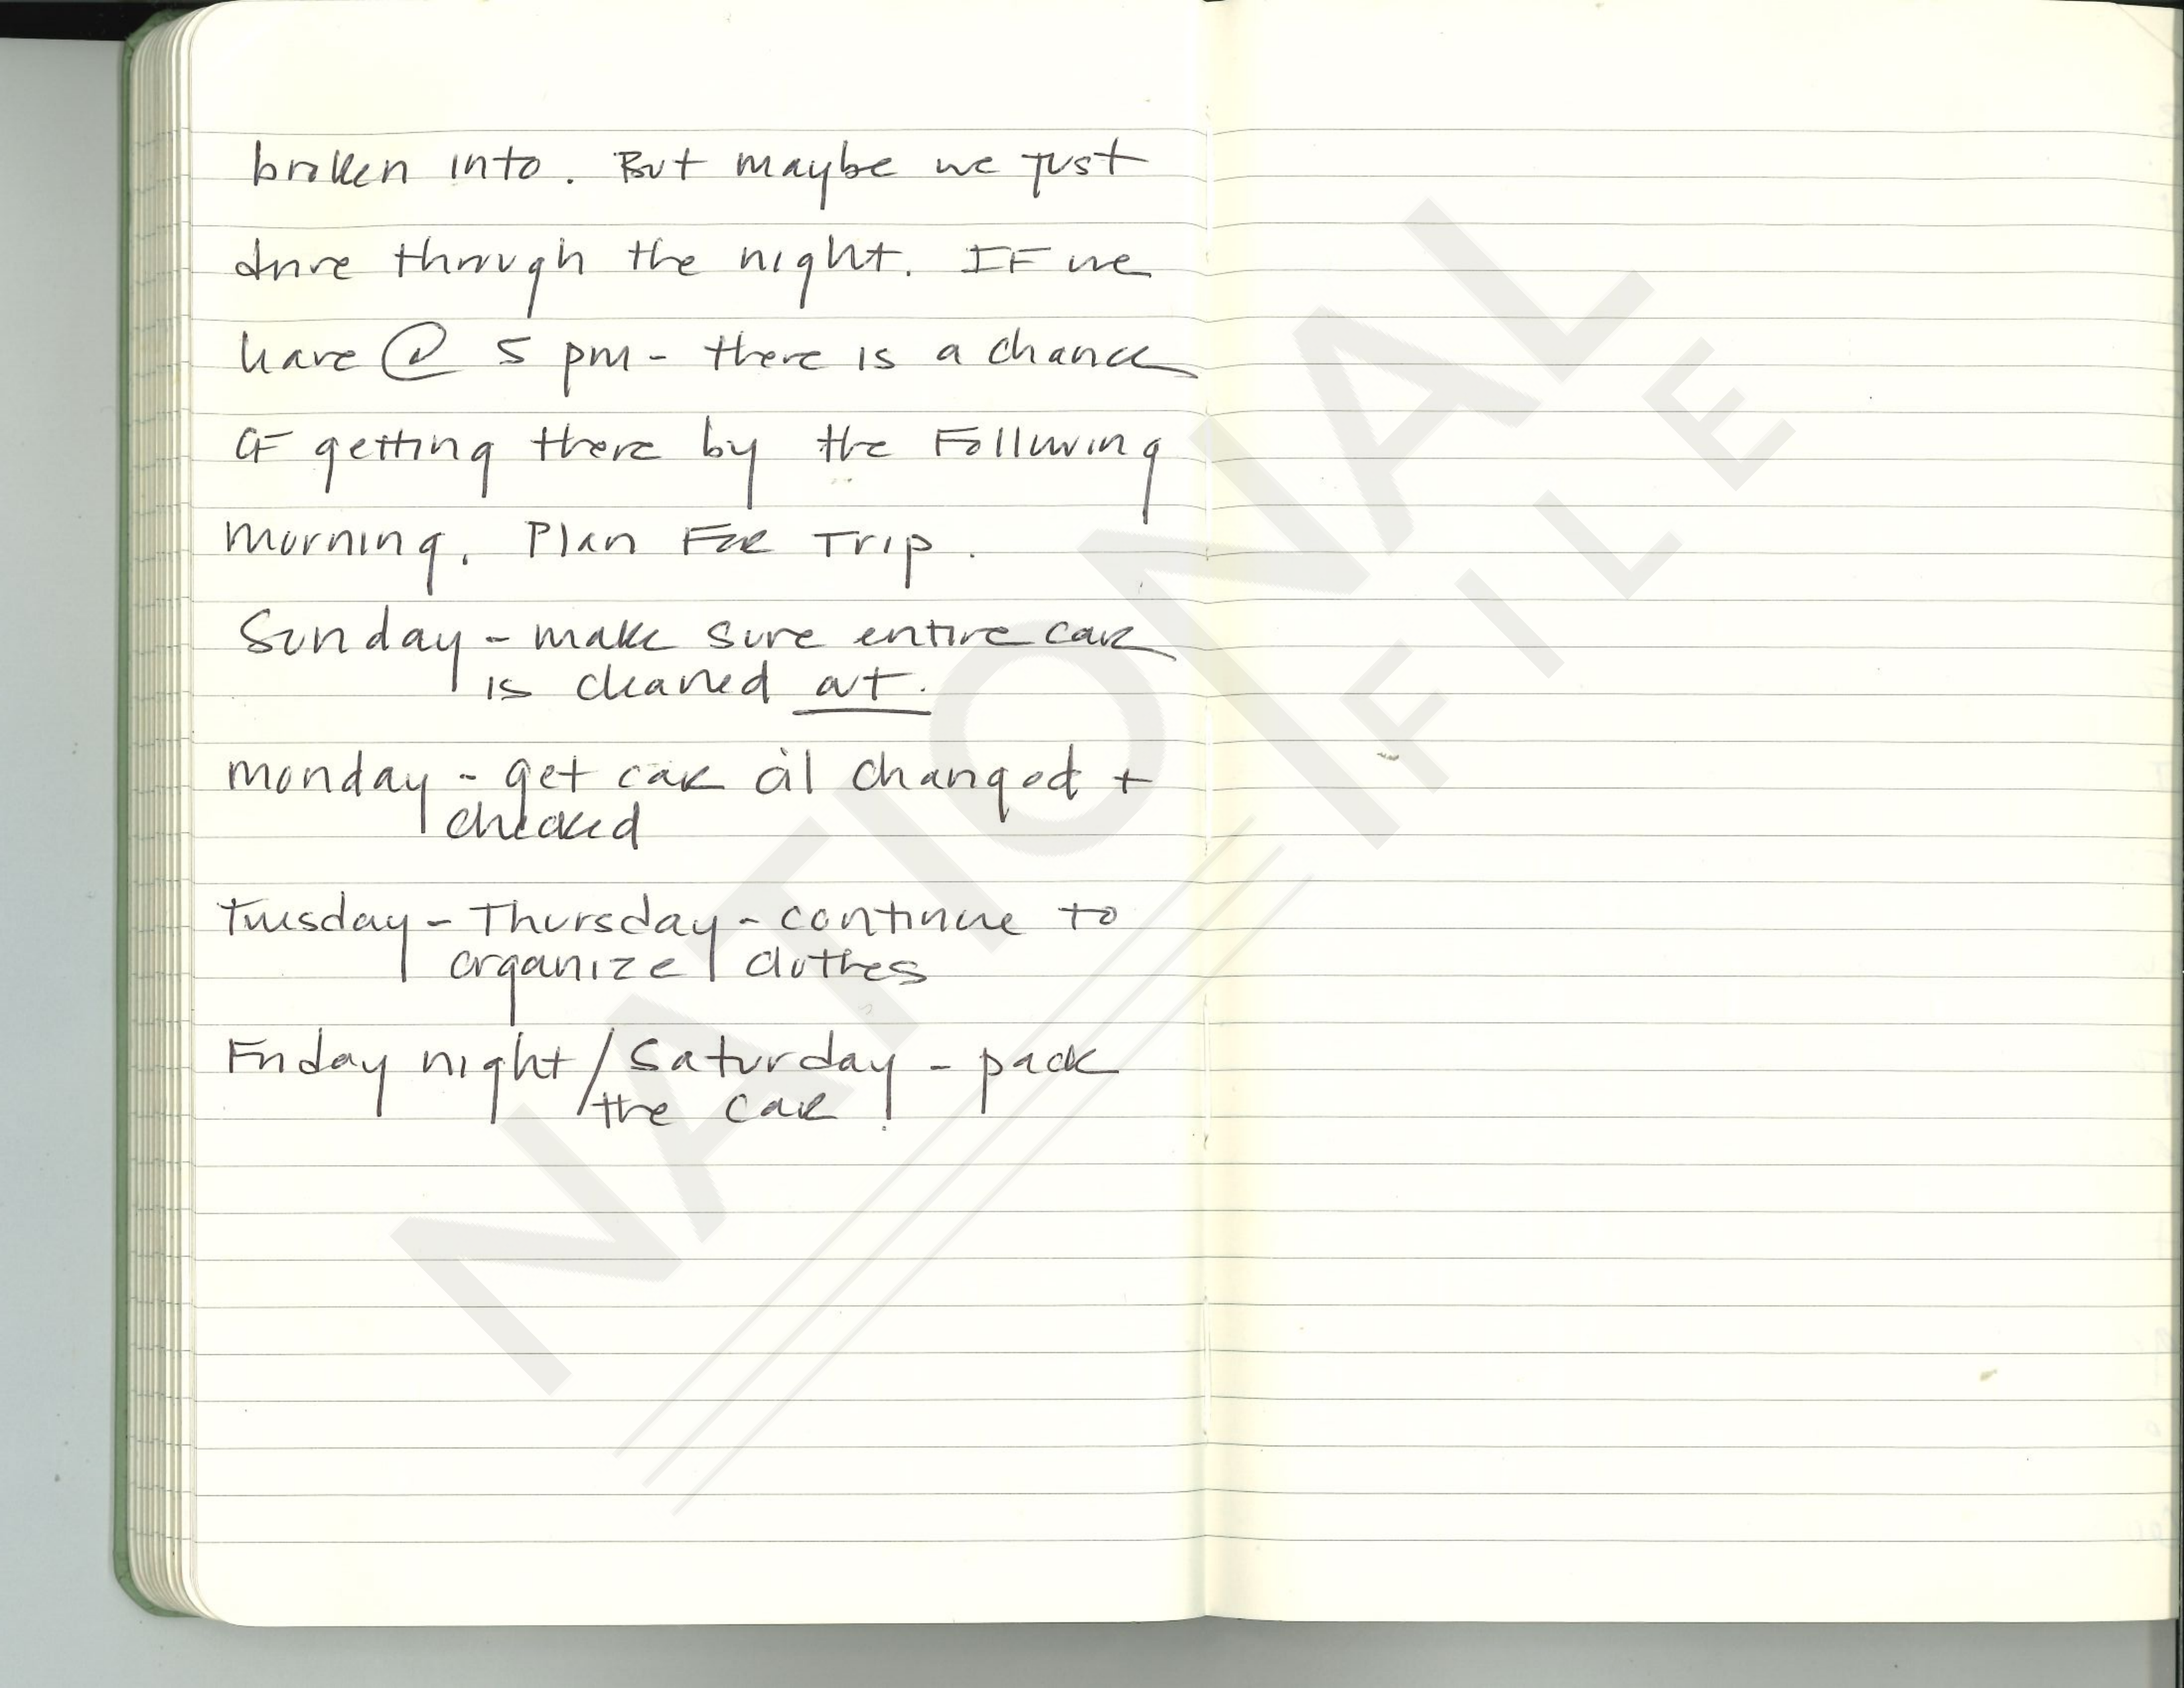 broken into. But maybe we just
drive through the night. IF we
leave @ 5 pm - there is a chance
OF getting there by the Following
morning. Plan For Trip.
Sunday - make sure entire car
is cleaned out.
Monday - get car oil changed +
checked
Tuesday - Thursday - continue to
organize clothes
Friday night / Saturday - pack
the car
NATIONAL
FILE